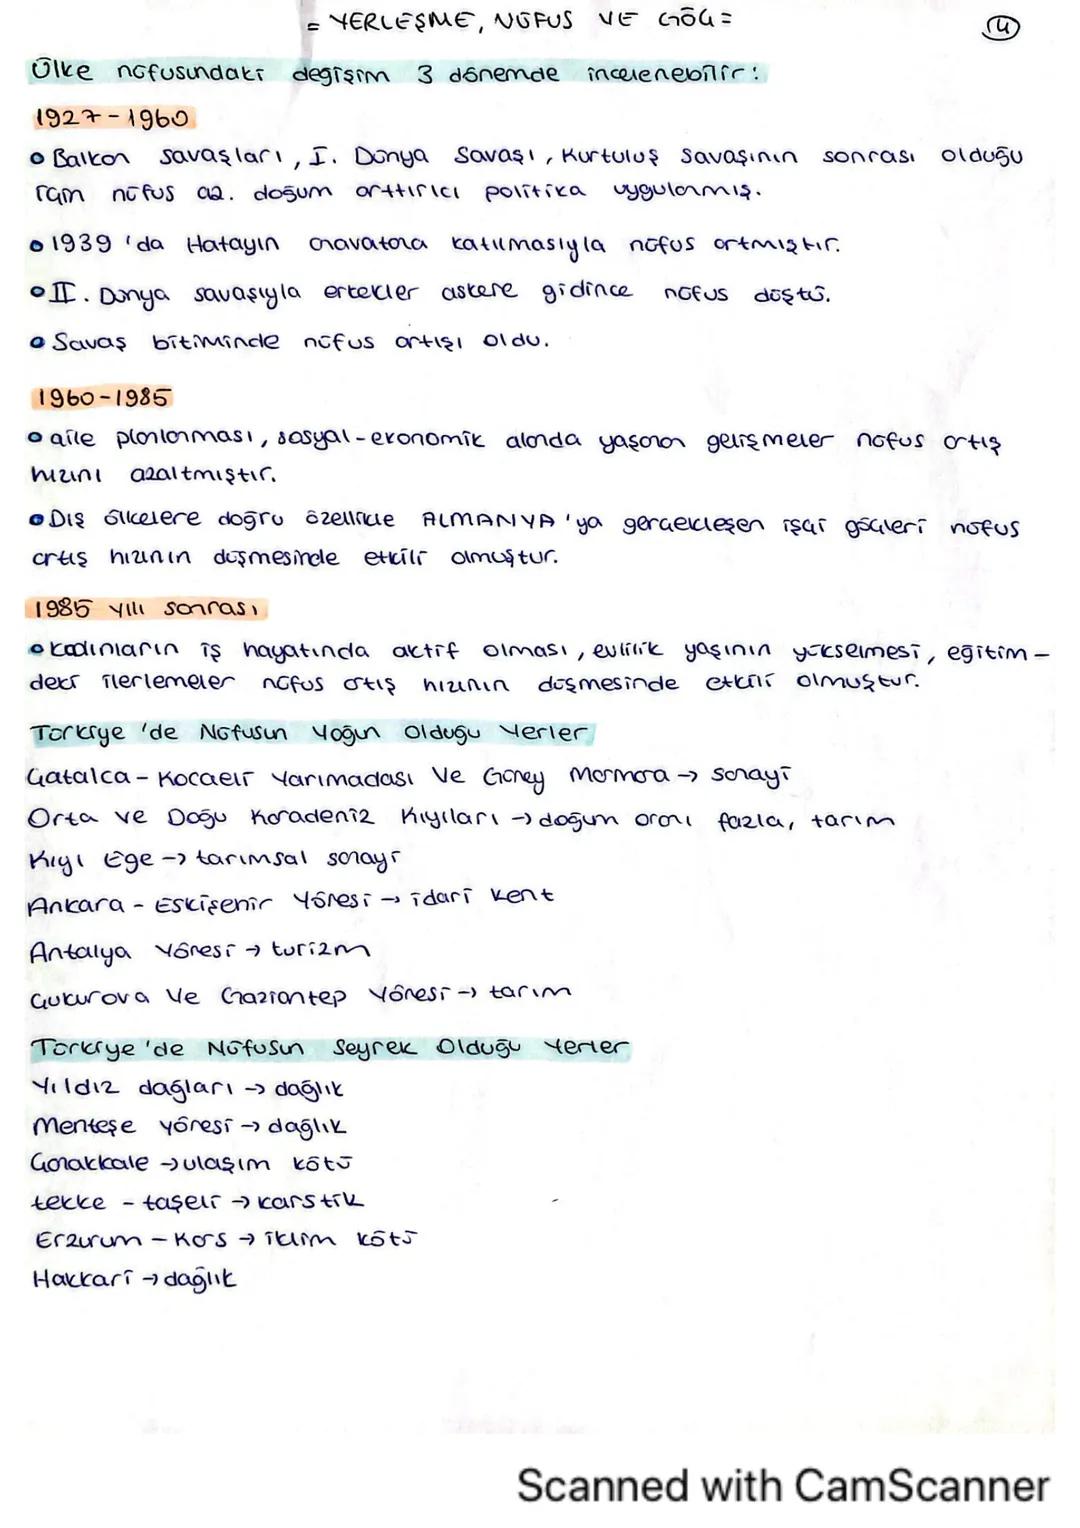 = YERLEŞME, NÜFUS VE GÖÇ =
14
Ülke nüfusundaki değişim 3 dönemde incelenebilir:
1927-1960
Balkan savaşları, I. Dünya Savaşı, Kurtuluş Savaşının sonrası olduğu
için nüfus az. doğum arttırıcı politika uygulanmış.
1939 'da Hatayın anavatana katılmasıyla nüfus artmıştır.
II. Dünya savaşıyla erkekler askere gidince nüfus düştü.
Savaş bitiminde nüfus artışı oldu.
1960-1985
aile planlanması, sosyal-ekonomik alanda yaşanan gelişmeler nüfus artış
hızını azaltmıştır.
Dış ülkelere doğru özellikle ALMANYA'ya gerçekleşen işçi göçleri nüfus
artış hızının düşmesinde etkili olmuştur.
1985 yılı sonrası
kadınların iş hayatında aktif olması, evlilik yaşının yükselmesi, eğitim-
deki ilerlemeler nüfus artış hızının düşmesinde etkili olmuştur.
Türkiye 'de Nüfusun Yoğun Olduğu Yerler
Çatalca - Kocaeli Yarımadası Ve Güney Marmara → sanayi
Orta ve Doğu Karadeniz Kıyıları → doğum oranı fazla, tarım
Kıyı Ege → tarımsal sanayi
Ankara - Eskişehir Yöresi → idari kent
Antalya Yöresi → turizm
Çukurova Ve Gaziantep Yöresi → tarım
Türkiye 'de Nüfusun Seyrek Olduğu Yerler
Yıldız dağları → dağlık
Menteşe yöresi → dağlık
Çanakkale → ulaşım kötü
tekke - taşeli → karstik
Erzurum - Kars → iklim kötü
Hakkari → dağlık
Scanned with CamScanner